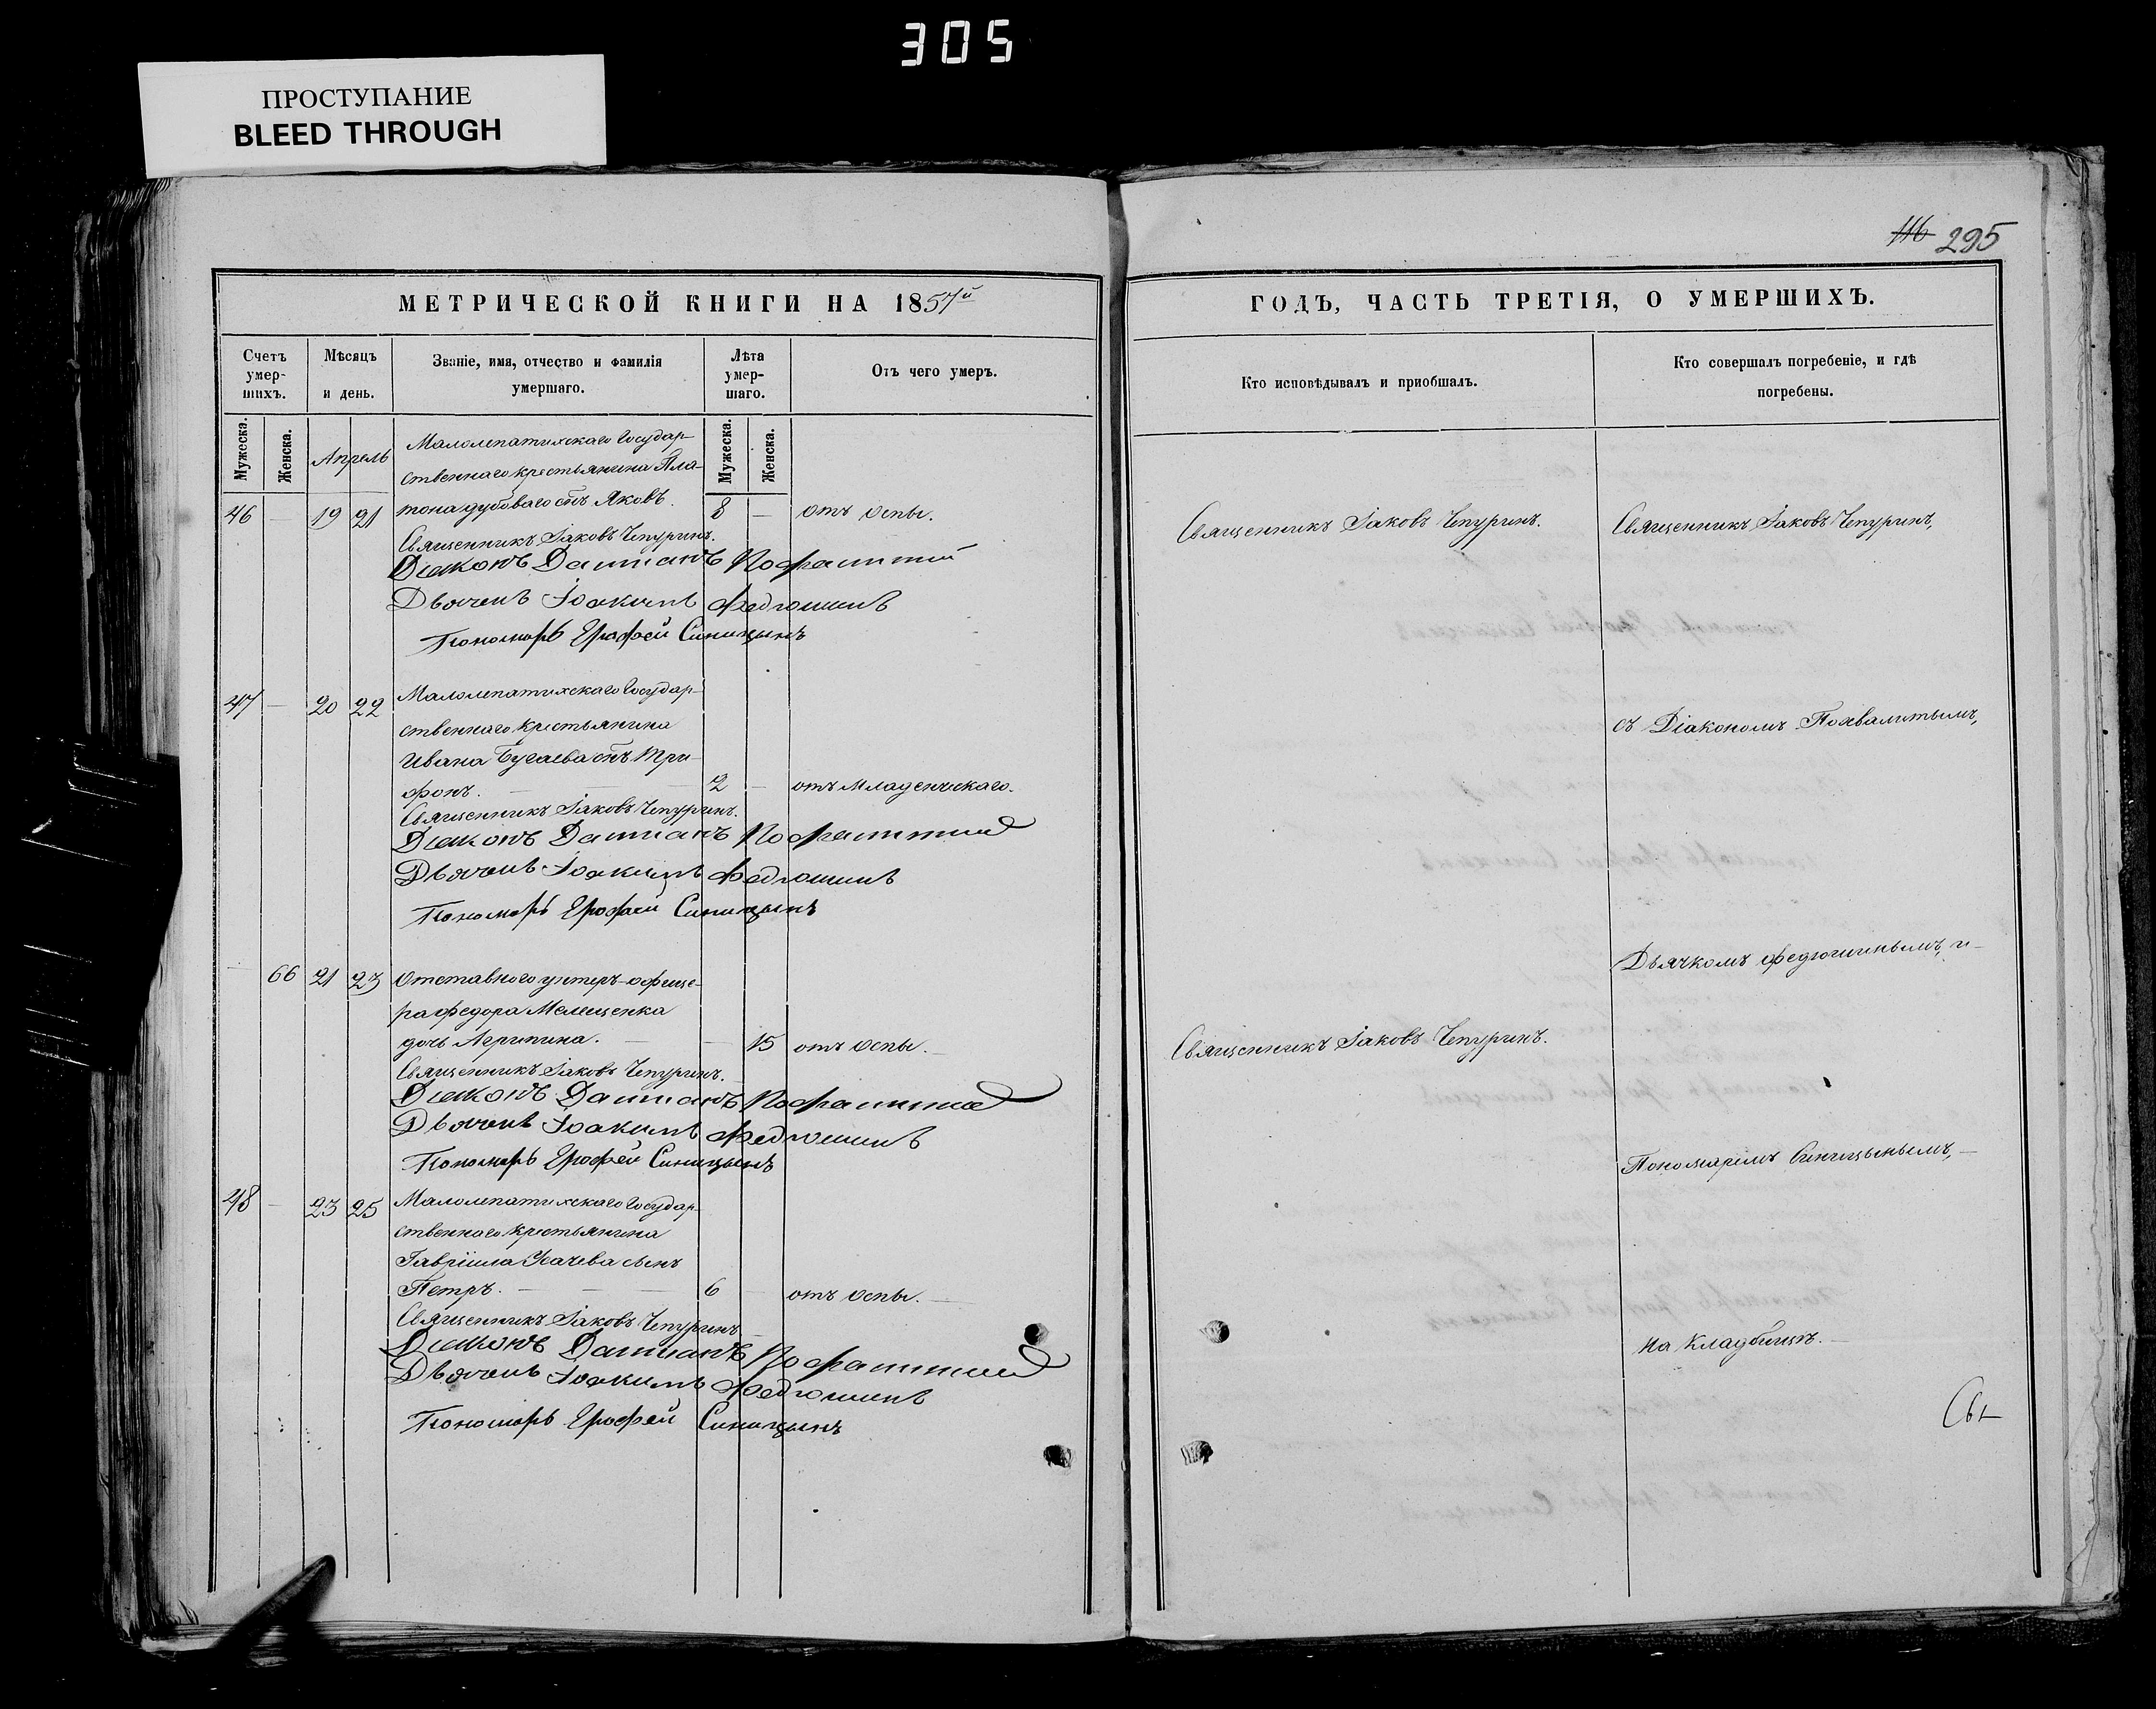 305
ПРОСТУПАНИЕ
BLEED THROUGH
116 295
МЕТРИЧЕСКОЙ КНИГИ НА 1857й
Счетъ умер-шихъ.
Мѣсяцъ и день.
Званіе, имя, отчество и фамилія умершаго.
Лѣта умер-шаго.
Отъ чего умеръ.
Мужеска.
Женска.
Апрель
Мужеска.
Женска.
Малолепатихскаго Государ-
ственнаго крестьянина Пла-
46 — 19 21 тона Дубоваго сынъ Яковъ. 8 — отъ оспы.
Священникъ Іаковъ Чепуринъ.
Діаконъ Даміанъ
Дьячекъ Іоакимъ Федюшинъ
Пономарь Ерофей Синицынъ
47 — 20 22 Малолепатихскаго Государ-
ственнаго крестьянина
Ивана Бугаева сынъ Три-
фонъ. — 2 — отъ младенческаго.
Священникъ Іаковъ Чепуринъ.
Діаконъ Даміанъ
Дьячекъ Іоакимъ Федюшинъ
Пономарь Ерофей Синицынъ
— 66 21 23 Отставного унтеръ-офице-
ра Федора Мелещенка
дочь Агрипина. — — 15 отъ оспы.
Священникъ Іаковъ Чепуринъ.
Діаконъ Даміанъ
Дьячекъ Іоакимъ Федюшинъ
Пономарь Ерофей Синицынъ
48 — 23 25 Малолепатихскаго Государ-
ственнаго крестьянина
Гавріила Усачева сынъ
Петръ. — — — 6 — отъ оспы. —
Священникъ Іаковъ Чепуринъ
Діаконъ Даміанъ
Дьячекъ Іоакимъ Федюшинъ
Пономарь Ерофей Синицынъ
ГОДЪ, ЧАСТЬ ТРЕТІЯ, О УМЕРШИХЪ.
Кто исповѣдывалъ и пріобщалъ.
Кто совершалъ погребеніе, и гдѣ
погребены.
Священникъ Іаковъ Чепуринъ.
Священникъ Іаковъ Чепуринъ,
съ Діакономъ Похвалитымъ,
Дьячкомъ Федюшинымъ, и—
Священникъ Іаковъ Чепуринъ.
Пономаремъ Синицынымъ, —
на кладбищѣ. —